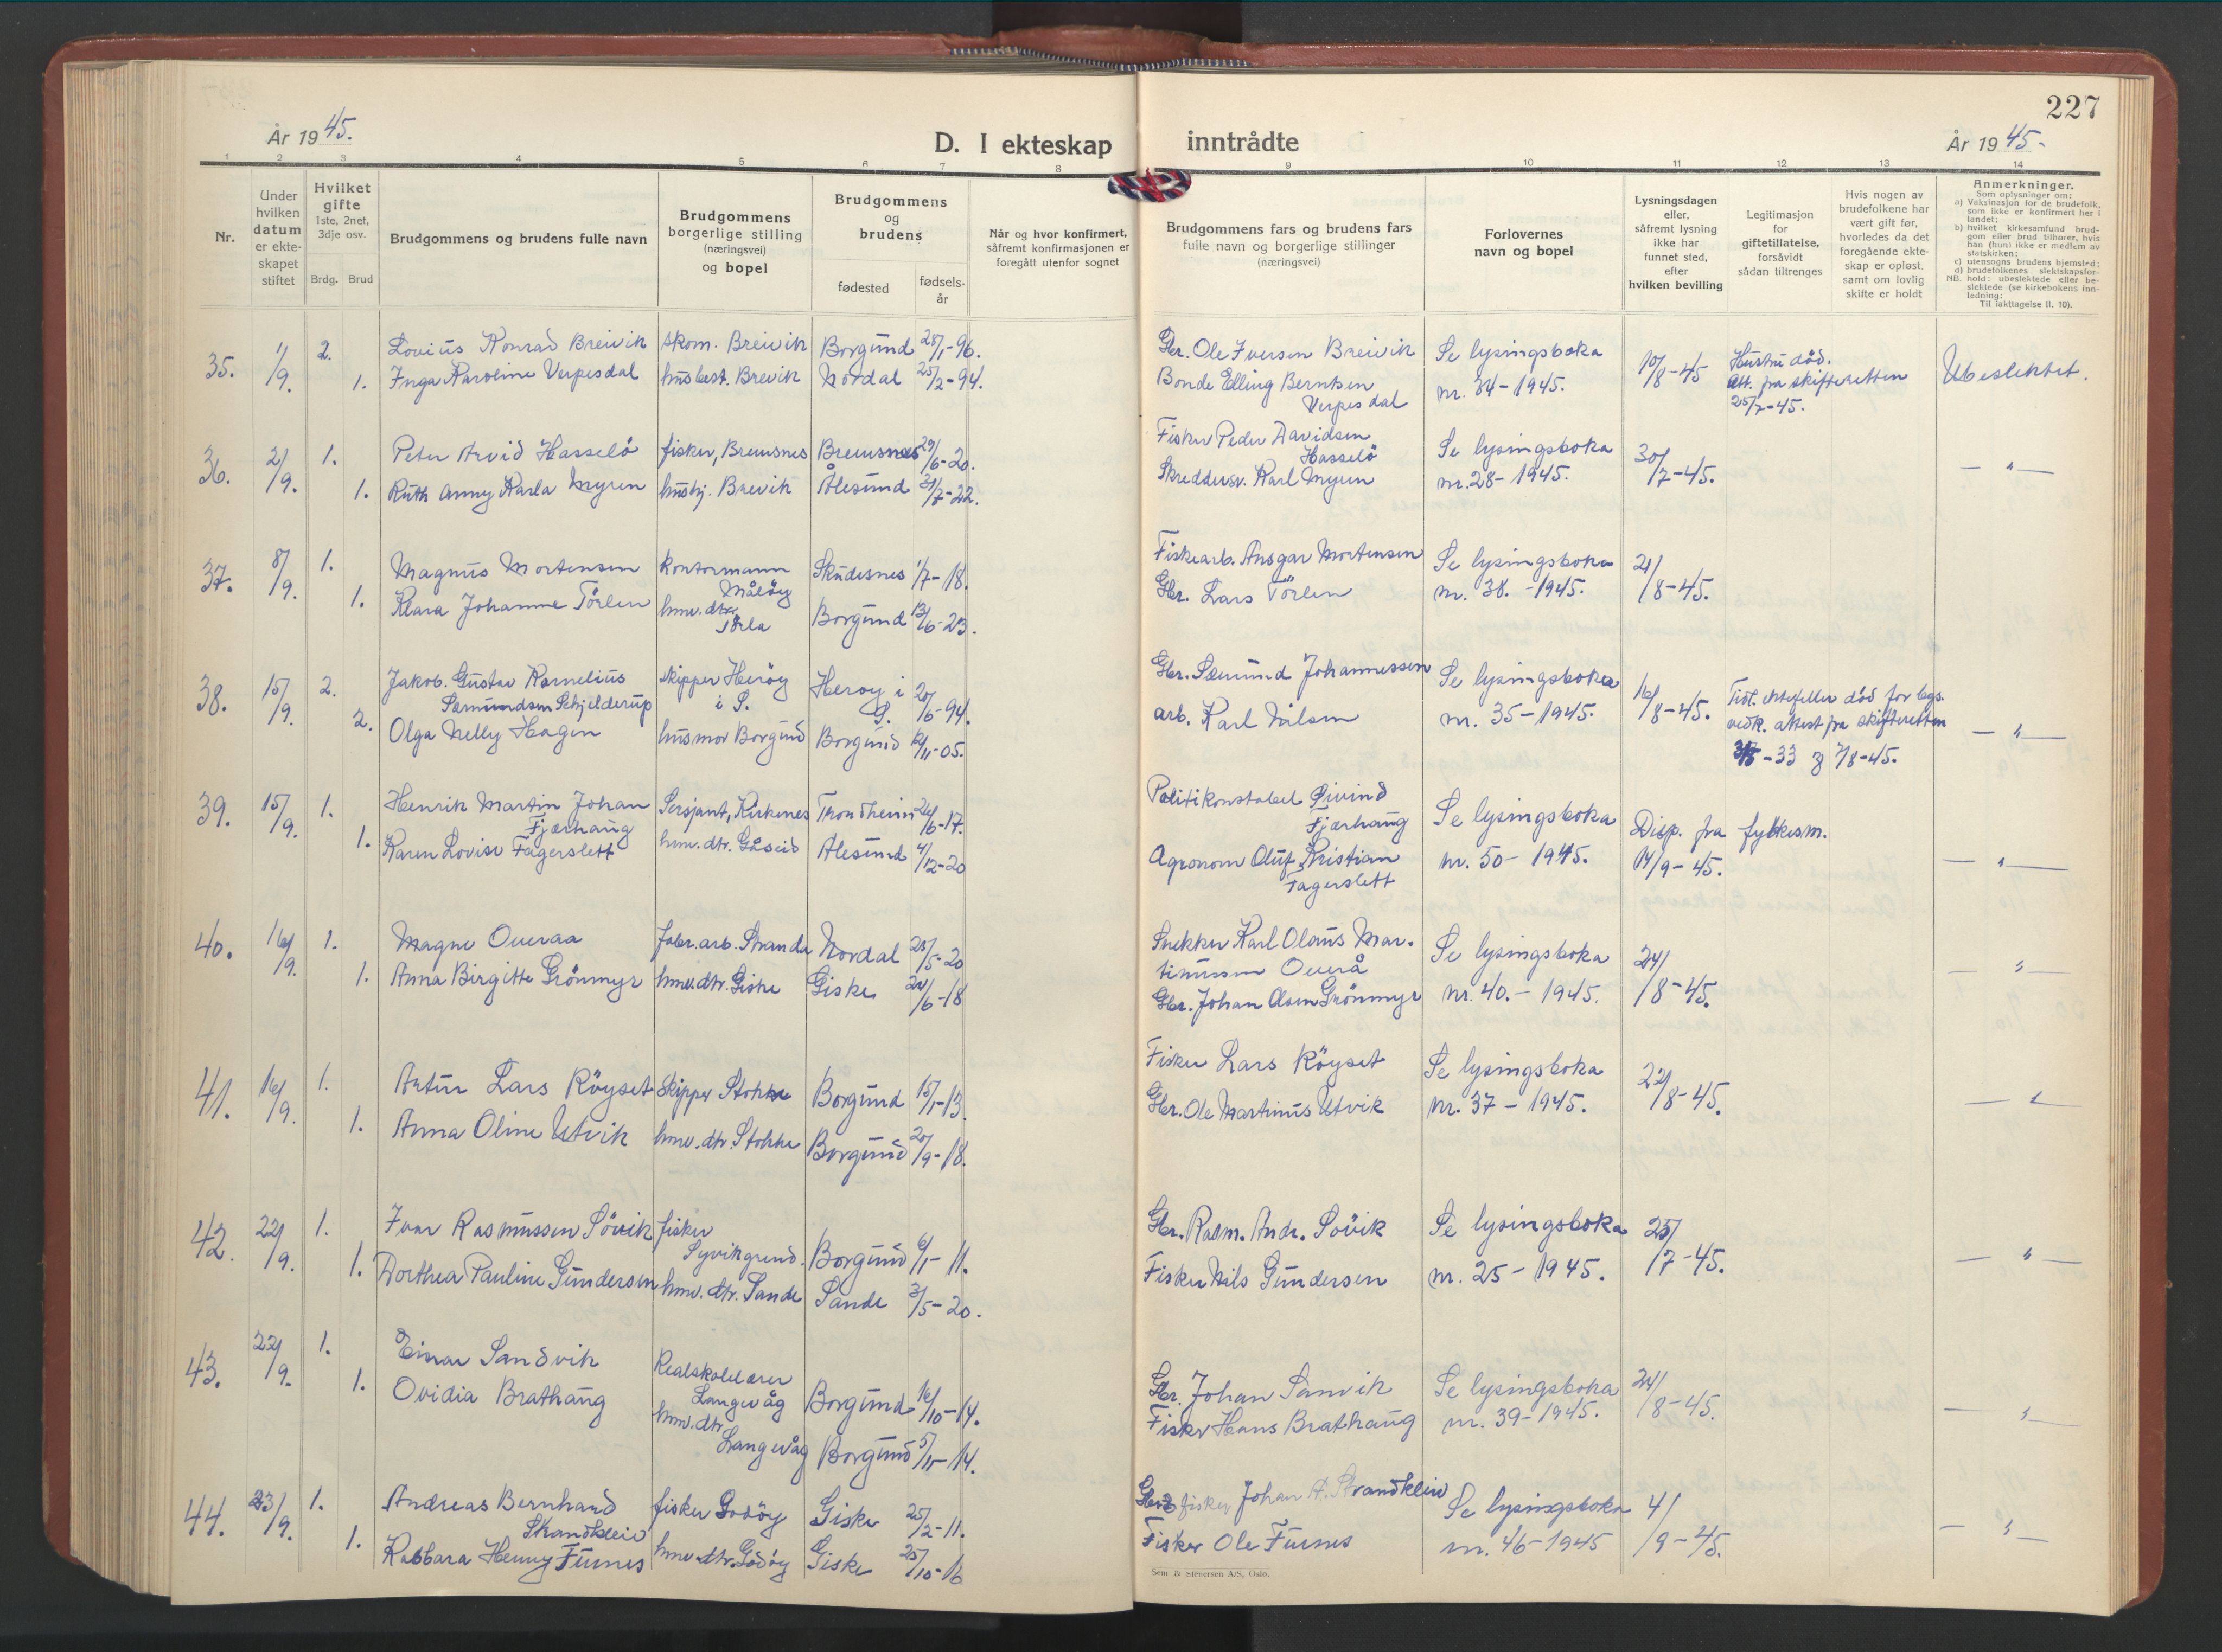 227
År 1945.
D. I ekteskap inntrådte
År 1945.
1 2 3 4 5 6 7 8 9 10 11 12 13 14
Nr.
Under hvilken datum er ekte-skapet stiftet
Hvilket gifte 1ste, 2net, 3dje osv.
Brdg. Brud
Brudgommens og brudens fulle navn
Brudgommens borgerlige stilling (næringsvei) og bopel
Brudgommens og brudens
fødested
fødsels-år
Når og hvor konfirmert, såfremt konfirmasjonen er foregått utenfor sognet
Brudgommens fars og brudens fars fulle navn og borgerlige stillinger (næringsvei)
Forlovernes navn og bopel
Lysningsdagen eller, såfremt lysning ikke har funnet sted, efter hvilken bevilling
Legitimasjon for giftetillatelse, forsåvidt sådan tiltrenges
Hvis nogen av brudefolkene har vært gift før, hvorledes da det foregående ekte-skap er opløst, samt om lovlig skifte er holdt
Anmerkninger.
Som oplysninger om:
a) Vaksinasjon for de brudefolk, som ikke er konfirmert her i landet;
b) hvilket kirkesamfund brud-gom eller brud tilhører, hvis han (hun) ikke er medlem av statskirken;
c) utensogns brudens hjemsted;
d) brudefolkenes slektskapsfor-hold: ubeslektede eller be-slektede (se kirkebokens inn-ledning:
NB. Til iakttagelse II. 10).
35. 1/9. 2. Lovius Konrad Breivik skom. Breivik Borgund 28/1-96. Gbr. Ole Iversen Breivik Se lysingsboka 10/8-45 Hustru død. Ubeslektet.
1. Inga Karoline Verpesdal husbest. Brevik Nordal 25/2-94. Bonde Elling Berntsen Verpesdal nr. 34-1945. Att. fra skifteretten 25/7-45.
36. 2/9. 1. Peter Arvid Hasselö fisker, Bremsnes Bremsnes 29/6-20. Fisker Peder Davidsen Hasselö Se lysingsboka 30/7-45. — " —
1. Ruth Anny Karla Myren hushj. Brevik Ålesund 31/7-22. Skreddersv. Karl Myren nr. 28-1945.
37. 8/9. 1. Magnus Mortensen kontormann Måløy Skudesnes 1/7-18. Fiskearb. Ansgar Mortensen Se lysingsboka 21/8-45.
1. Klara Johanne Törlen hmv. dtr. Törla Borgund 13/6-23. Gbr. Lars Törlen nr. 38.-1945.
38. 15/9. 2. Jakob Gustav Kornelius Sæmundsen Schjelderup skipper Herøy i S. Herøy i S. 20/6-94. Gbr. Sæmund Johannessen Se lysingsboka 16/8-45. Tidl. ektefeller død for begs. vedk. attest fra skifteretten
2. Olga Nelly Hagen husmor Borgund Borgund 12/11-05. arb. Karl Nilsen nr. 35-1945. -33 og 7/8-45. — " —
39. 15/9. 1. Henrik Martin Johan Fjærhaug Sersjant, Kirkenes Trondheim 26/6-17. Politikonstabel Øivind Fjærhaug Se lysingsboka Disp. fra fylkesm.
1. Karen Lovise Fagerslett hmv. dtr. Gåseid Ålesund 4/12-20 Agronom Oluf Kristian Fagerslett nr. 50-1945. 14/9-45. — " —
40. 16/9. 1. Magne Overaa fabr. arb. Stranda Nordal 28/5-20 Snekker Karl Olaus Mar-tinussen Overå Se lysingsboka 24/8-45. — " —
1. Anna Birgitte Grönmyr hmv. dtr. Giske Giske 20/6-18 Gbr. Johan Olsen Grönmyr nr. 40.-1945.
41. 16/9. 1. Artur Lars Röyset skipper Stokke Borgund 15/1-13. Fisker Lars Röyset Se lysingsboka 22/8-45. — " —
1. Anna Oline Utvik hmv. dtr. Stokke Borgund 20/9-18. Gbr. Ole Martinus Utvik nr. 37-1945.
42. 22/9. 1. Ivar Rasmussen Sövik fisker Syvikgrend. Borgund 6/1-11. Gbr. Rasm. Andr. Sövik Se lysingsboka 25/7-45. — " —
1. Dorthea Pauline Gundersen hmv. dtr. Sande Sande 3/5-20. Fisker Nils Gundersen nr. 25-1945.
43. 22/9. 1. Einar Sandvik Realskolelærer Langevåg Borgund 16/10-14. Gbr. Johan Sanvik Se lysingsboka 24/8-45. — " —
1. Ovidia Brathaug hmv. dtr. Langevåg Borgund 5/11-14. Fisker Hans Brathaug nr. 39-1945.
44. 23/9. 1. Andreas Bernhard Strandkleiv fisker Godöy Giske 25/2-11. Gbr. & fisker Johan A. Strandkleiv Se lysingsboka 4/9-45. — " —
1. Rabbara Henny Furnes hmv. dtr. Godöy Giske 25/10-16 Fisker Ole Furnes nr. 46-1945
Sem & Stenersen A/S, Oslo.